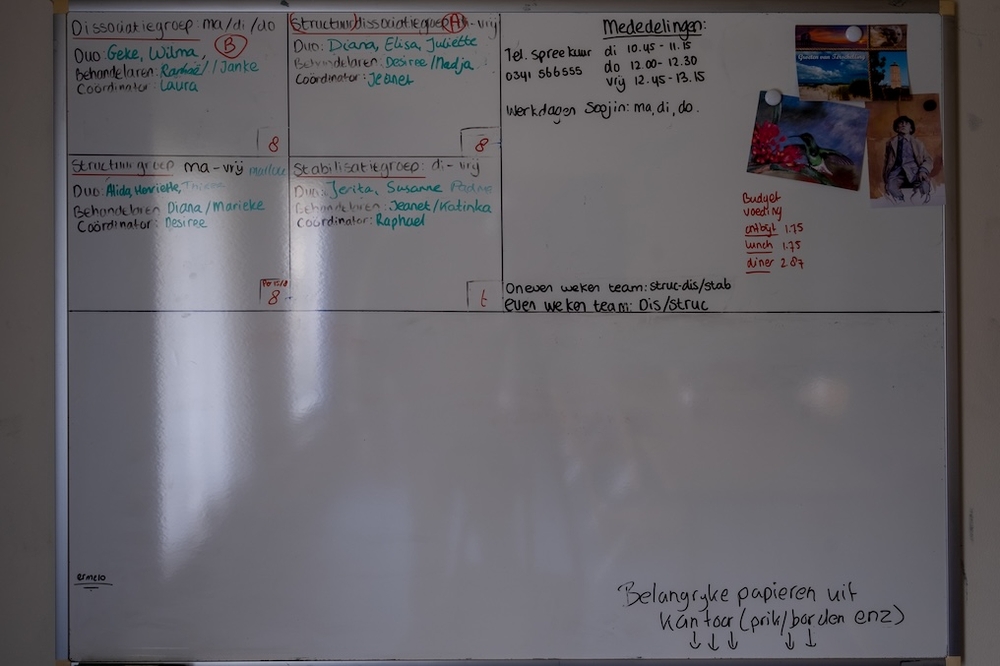 Dissociatiegroep ma/di/do
Duo: Geke, Wilma, B
Behandelaren: / Janke
Coördinator: Laura
8
(Structuur)dissociatiegroep A di-vrij
Duo: Diana, Elisa, Juliette
Behandelaren: Desiree/Nadja
Coördinator: Jeanet
8
Structuurgroep ma-vrij
Duo: Alida, Henriette,
Behandelaren Diana/Marieke
Coördinator: Desiree
8
Stabilisatiegroep: di-vrij
Duo: Jerita, Susanne
Behandelaren: Jeanet/Katinka
Coördinator: Raphael
Mededelingen:
Tel. spreekuur di 10.45 - 11.15
0341 566555 do 12.00 - 12.30
vrij 12.45 - 13.15
Werkdagen Soojin: ma, di, do.
Budget
voeding
ontbijt 1.75
lunch 1.75
diner 2.87
Oneven weken team: struc-dis/stab
even weken team: Dis/struc
ermelo
Belangryke papieren uit
kantoor (prik/borden enz)